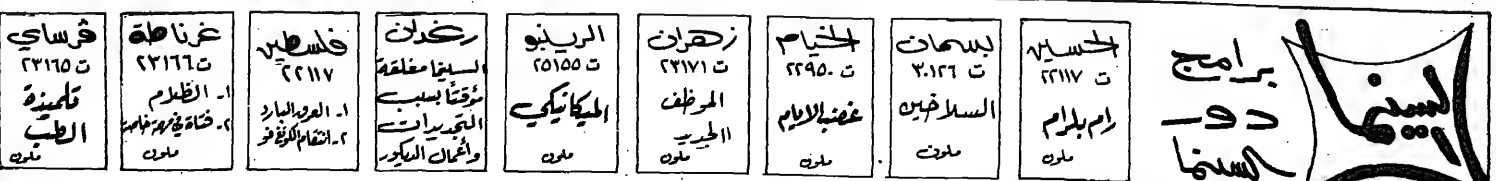 السينما
برامج
دور
السينما
الحسين
ت ٢٢١١٧
رام بلرام
ملون
بسمان
ت ٣٠١٢٦
السلاخين
ملون
الخيام
ت ٢٢٩٥٠
غضب الايام
ملون
زهران
ت ٢٣١٧١
الموظف
الجديد
ملون
الرينبو
ت ٢٥١٥٥
الميكانيكي
ملون
رغدان
السينما مغلقة
مؤقتاً بسبب
التجديدات
وأعمال الديكور
فلسطين
٢٢١١٧
١ـ العرق البارد
٢ـ انتقام الكونغ فو
غرناطة
ت ٢٣١٦٦
١ـ الظلام
٢ـ فتاة في مهمة خاصة
ملون
فرساي
ت ٢٣١٦٥
تلميذة
الطب
ملون